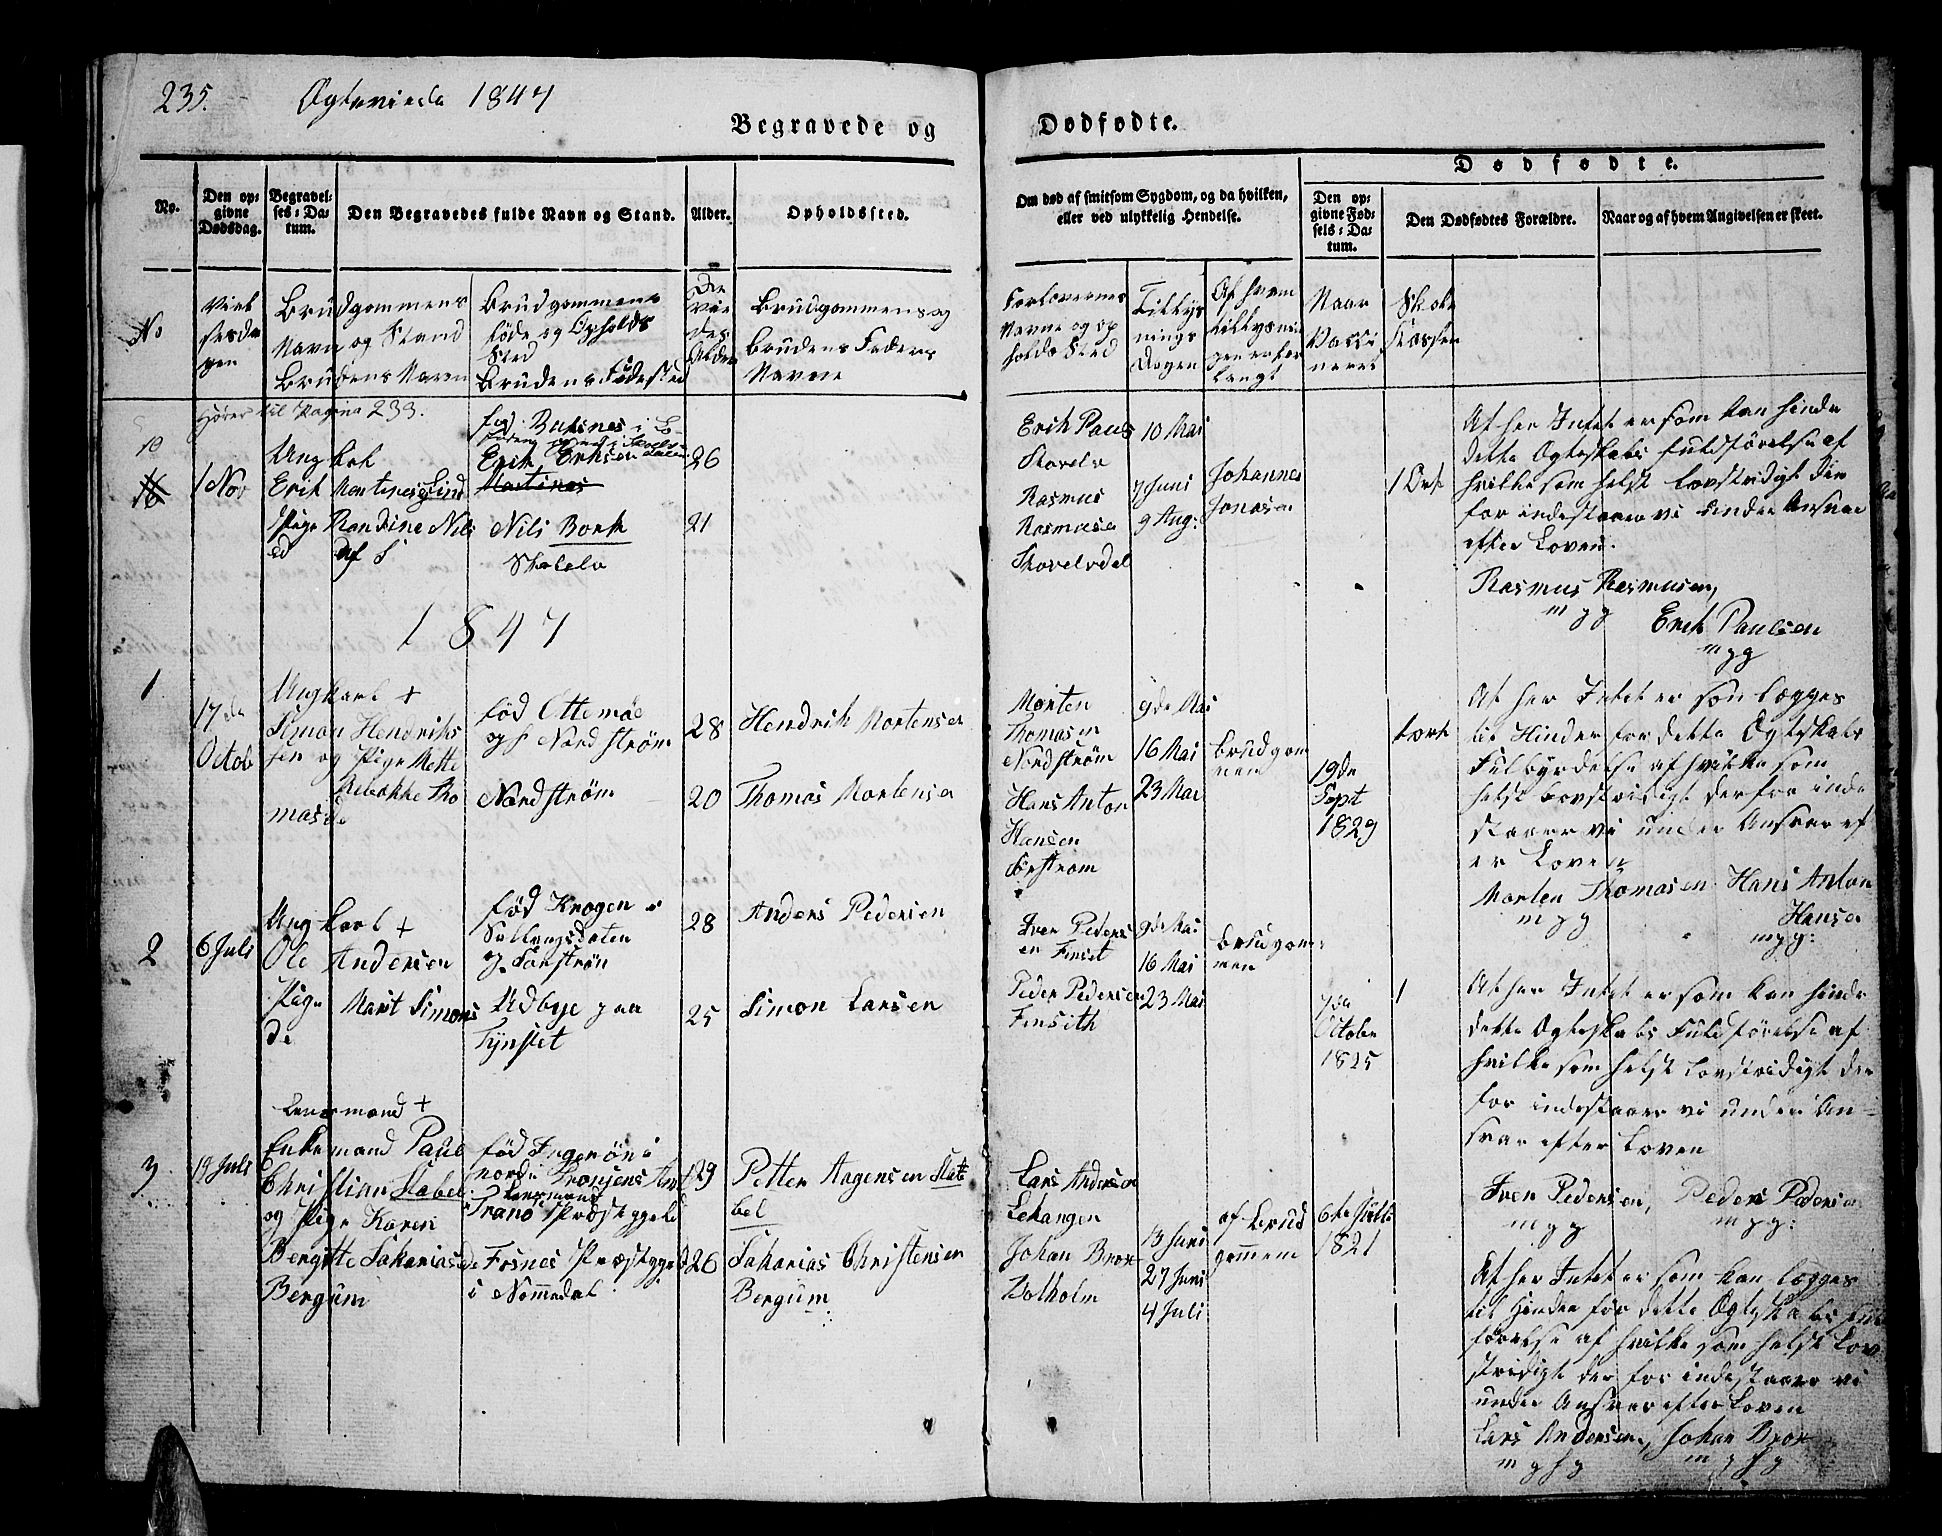 235.
Ægteviede 1847
Begravede og
Dødfødte.
No.
Den op-
givne
Dødsdag.
Begravel-
ses-Da-
tum.
Den Begravedes fulde Navn og Stand.
Alder.
Opholdssted.
Om død af smitsom Sygdom, og da hvilken,
eller ved ulykkelig Hendelse.
Dødfødte.
Den op-
givne Fød-
sels-Da-
tum.
Den Dødfødtes Forældre.
Naar og af hvem Angivelsen er skeet.
No
Viel
sesda
gen
Brudgommens
Navn og Stand
Brudens Navn
Brudgommens
føde og Opholds
Sted
Brudens Fødested
De
Vie
des
Alder
Brudgommens og
Brudens Faders
Navne
Forlovernes
Navne og op
holds Sted
Tillys
nings
Dagen
Af hvem
tillysnin
gen er for
langt
Naar
Vacci
neret
Skole
Kassen
Hører til Pagina 233.
10
16
1 Nov
Ungkarl
Erik Martines Lind
Pige Randine Nils
d af S
født Butines i
Erik Eriksen
Martines
Nils Bork
Skolelv
26
21
Erik Pauls
Skovelv
Rasmus
Rasmusen
Skovelvdal
10 Mai
7 Juni
9 Aug:
Johannes
Jonasen
1 Ort
At her Intet er som kan hindre
dette Ægteskabs Fuldførelse af
hvilkesomhelst Lovstridigt der
for indestaaer vi under Ansvar
efter Loven.
Rasmus Rasmusen,
m p g
Erik Paulsen
m p g
1847
1
17de
Octob
Ungkarl +
Simon Hendriks
sen og Pige Mette
Rebakke Tho
masd
fød Ottemoe
og f Nordstrøm
Nordstrøm
28
20
Hendrik Mortensen
Thomas Mortensen
Morten
Thomasen
Nordstrøm
Hans Anton
Hansen
Sørstrøm
9de Mai
16 Mai
23 Mai
Brudgom
men
19de
Sept
1829
1ort
At her Intet er som lægges
til Hinder for dette Ægteskabs
Fulbyrdelse af hvilke som
helst Lovstridigt derfor inde
staaer vi under Ansvar ef
er Loven
Morten Thomasen Hans Anton
m p g
Hansen
mpg:
2
6 Juli
Ung karl +
Ole Andersen
Pige Marit Simons
de
fød Krogen i
Sollungsdalen
Sørstrøn
Udbye paa
Tynset
28
25
Anders Pedersen
Simon Larsen
Iver Peders
en Finset
Peder Pedersen
Finsith
9de Mai
16 Mai
23 Mai
Brudgom
men
7de
Octobr
1825
1
At her Intet er som kan hindre
dette Ægteskabs Fuldførelse af
hvilkesomhelst Lovstridigt der
for indestaaer vi under An-
svar efter Loven
Iver Pedersen, Peder Pedersen
m p g
m p g:
3
19 Juli
Lensmand +
Enkemand Paul
Christian Stabel
og Pige Karen
Bergitte Sakariasd
Bergum
fød Ingerøn i
nordre Tronjens Amt
Lensmand
Tranø Præstegjeld
Fosnes Præstegjeld
i Nommedal
29
26
Petter Aagensen Sta
bel
Sakarias Christensen
Bergum
Lars Andersen
Lekangen
Johan Brox
Bolholm
13 Juni
27 Juni
4 Juli
af Brud
gommem
6te Julli
1821
At her Intet er som kan lægges
til Hinder for dette Ægteskabs Ful
førelse af hvilke som helst Lov
stridigt der for indestaaer vi
under Ansvar efter Loven
Lars Andersen, Johan Brox
m p g
m p g